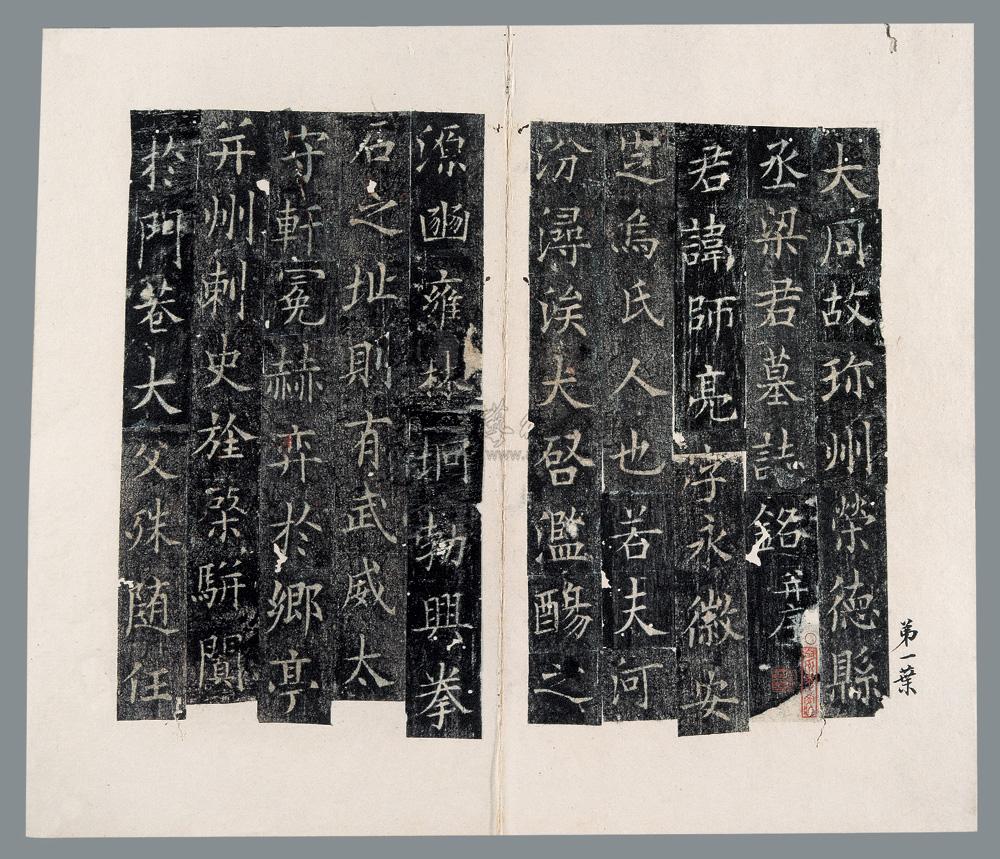 大周故珎州榮德縣
丞梁君墓誌銘并序
君諱師亮字永徽安
定烏氏人也若夫河
汾潯涘大啓濫觴之
源豳雍林坰勃興拳
石之址則有武威太
守軒冕赫弈於鄉亭
并州刺史旌棨駢闐
於門巷大父殊隨任
第一葉